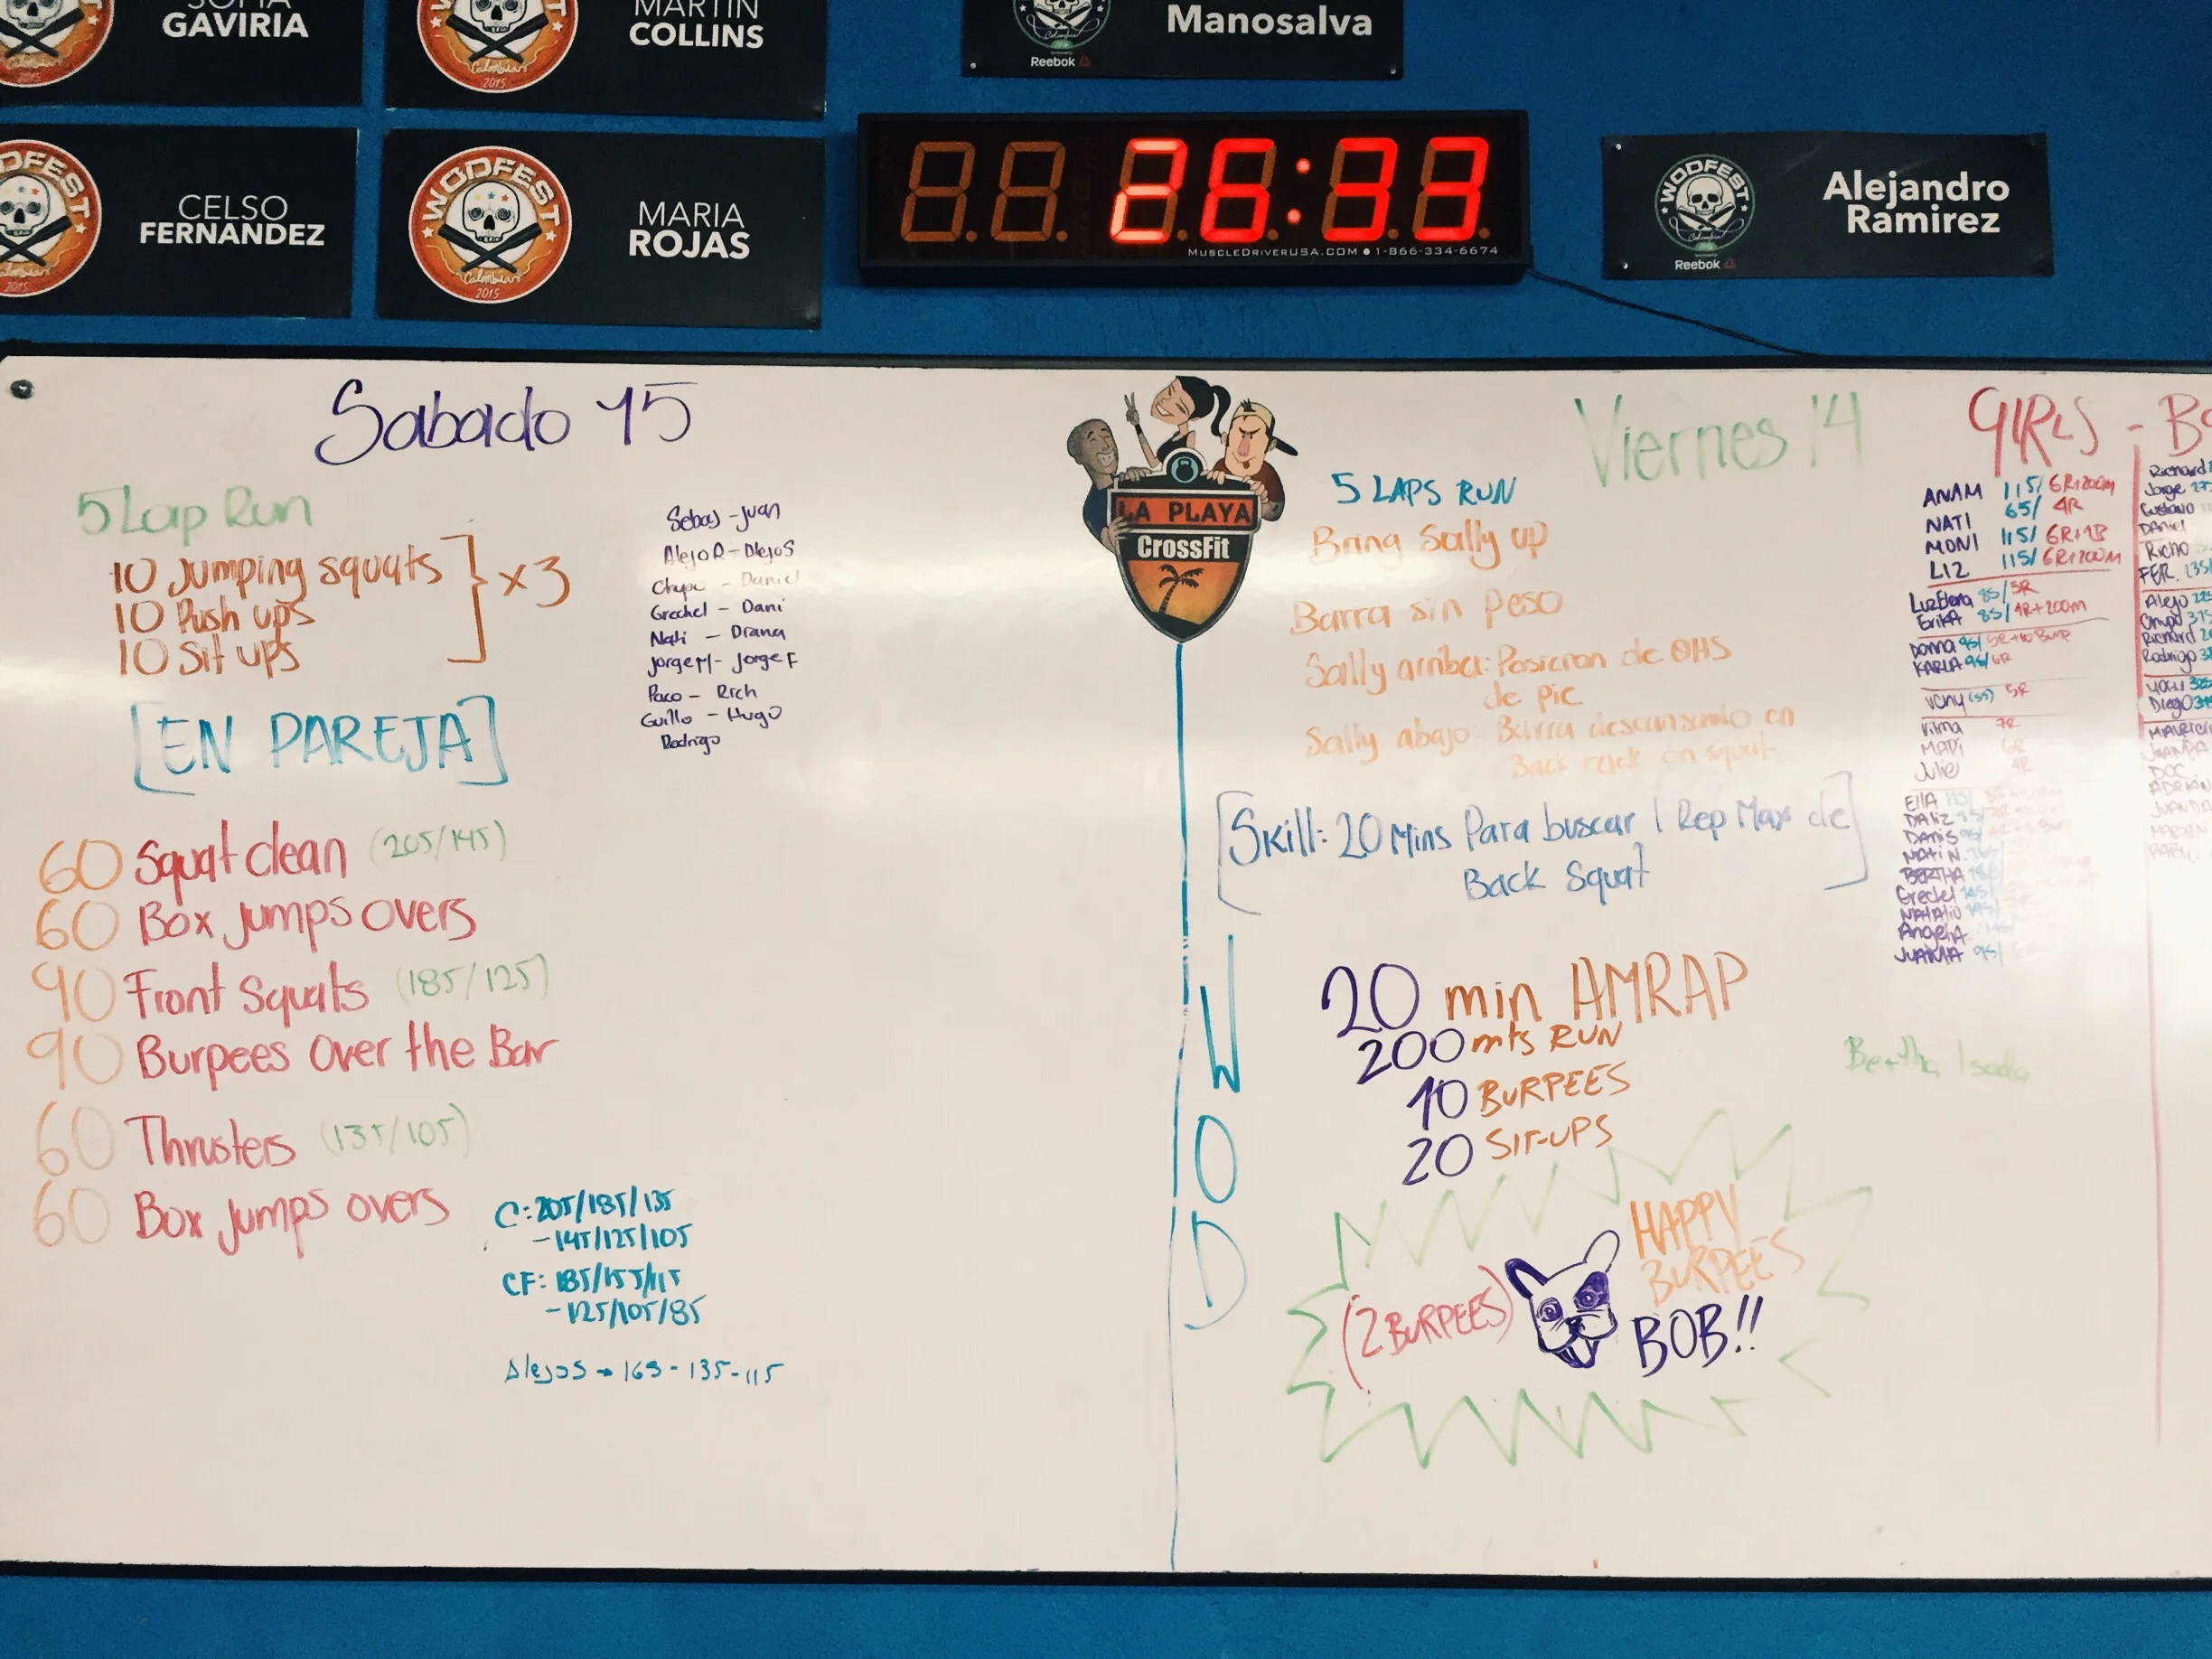 SOFIA
GAVIRIA
2015
MARTIN
COLLINS
Colombia
2015
Manosalva
Reebok
WODFEST
CELSO
FERNANDEZ
2015
WODFEST
Colombia
2015
MARIA
ROJAS
26:33
MUSCLEDRIVERUSA.COM • 1-866-334-6674
WODFEST
Reebok
Alejandro
Ramirez
Sabado 15
5 Lap Run
10 Jumping squats
10 Push ups
10 Sit ups
x3
Sebas - Juan
Alejo R - Alejo S
Chypo - Daniel
Grechel - Dani
Nati - Diana
Jorge M - Jorge F
Paco - Rich
Guillo - Hugo
Rodrigo
[EN PAREJA]
60 Squat clean (205/145)
60 Box Jumps overs
90 Front Squats (185/125)
90 Burpees Over the Bar
60 Thrusters (135/105)
60 Box Jumps overs
C: 205/185/135
- 145/125/105
CF: 185/155/115
- 125/105/85
AlejoS → 165 - 135 - 115
LA PLAYA
CrossFit
WOD
Viernes 14
5 LAPS RUN
Bring Sally up
Barra sin peso
Sally arriba: Posicion de OHS
de pie
Sally abajo: Barra descansando en
Back rack en squat
[Skill: 20 Mins Para buscar 1 Rep Max de
Back Squat]
20 min AMRAP
200 mts RUN
10 BURPEES
20 SIT-UPS
(2 BURPEES)
HAPPY
BURPEES
BOB!!
GIRLS - BO
ANAM 115/ 6R+200m
NATI 65/ 4R
MONI 115/ 6R+1B
LIZ 115/ 6R+200m
LuzElena 85/ 5R
Erika 85/ 4R+200m
Donna 95/
KARLA 95/ 6R
Vony (55) 5R
Vilma 7R
MADI 6R
Julie 4R
Ella
Daliz
Danis
Nati N.
BERTHA
Grechel
Natalio
Angela
JUANMA 95/
Bertha
Richard
Jorge
Gustavo
Daniel
Richo
FER. 135/
Alejo
Richard
Rodrigo
Diego
DOC